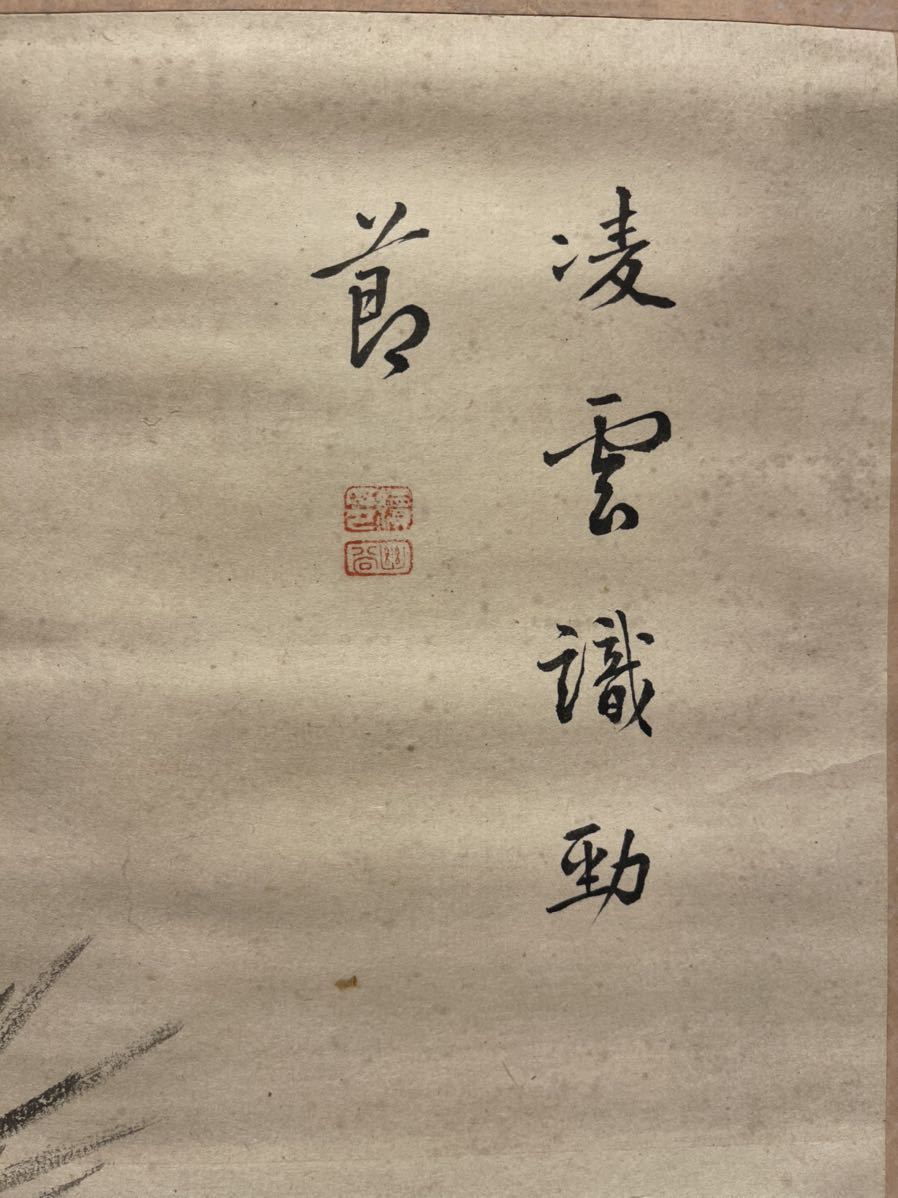 凌雲識勁
節